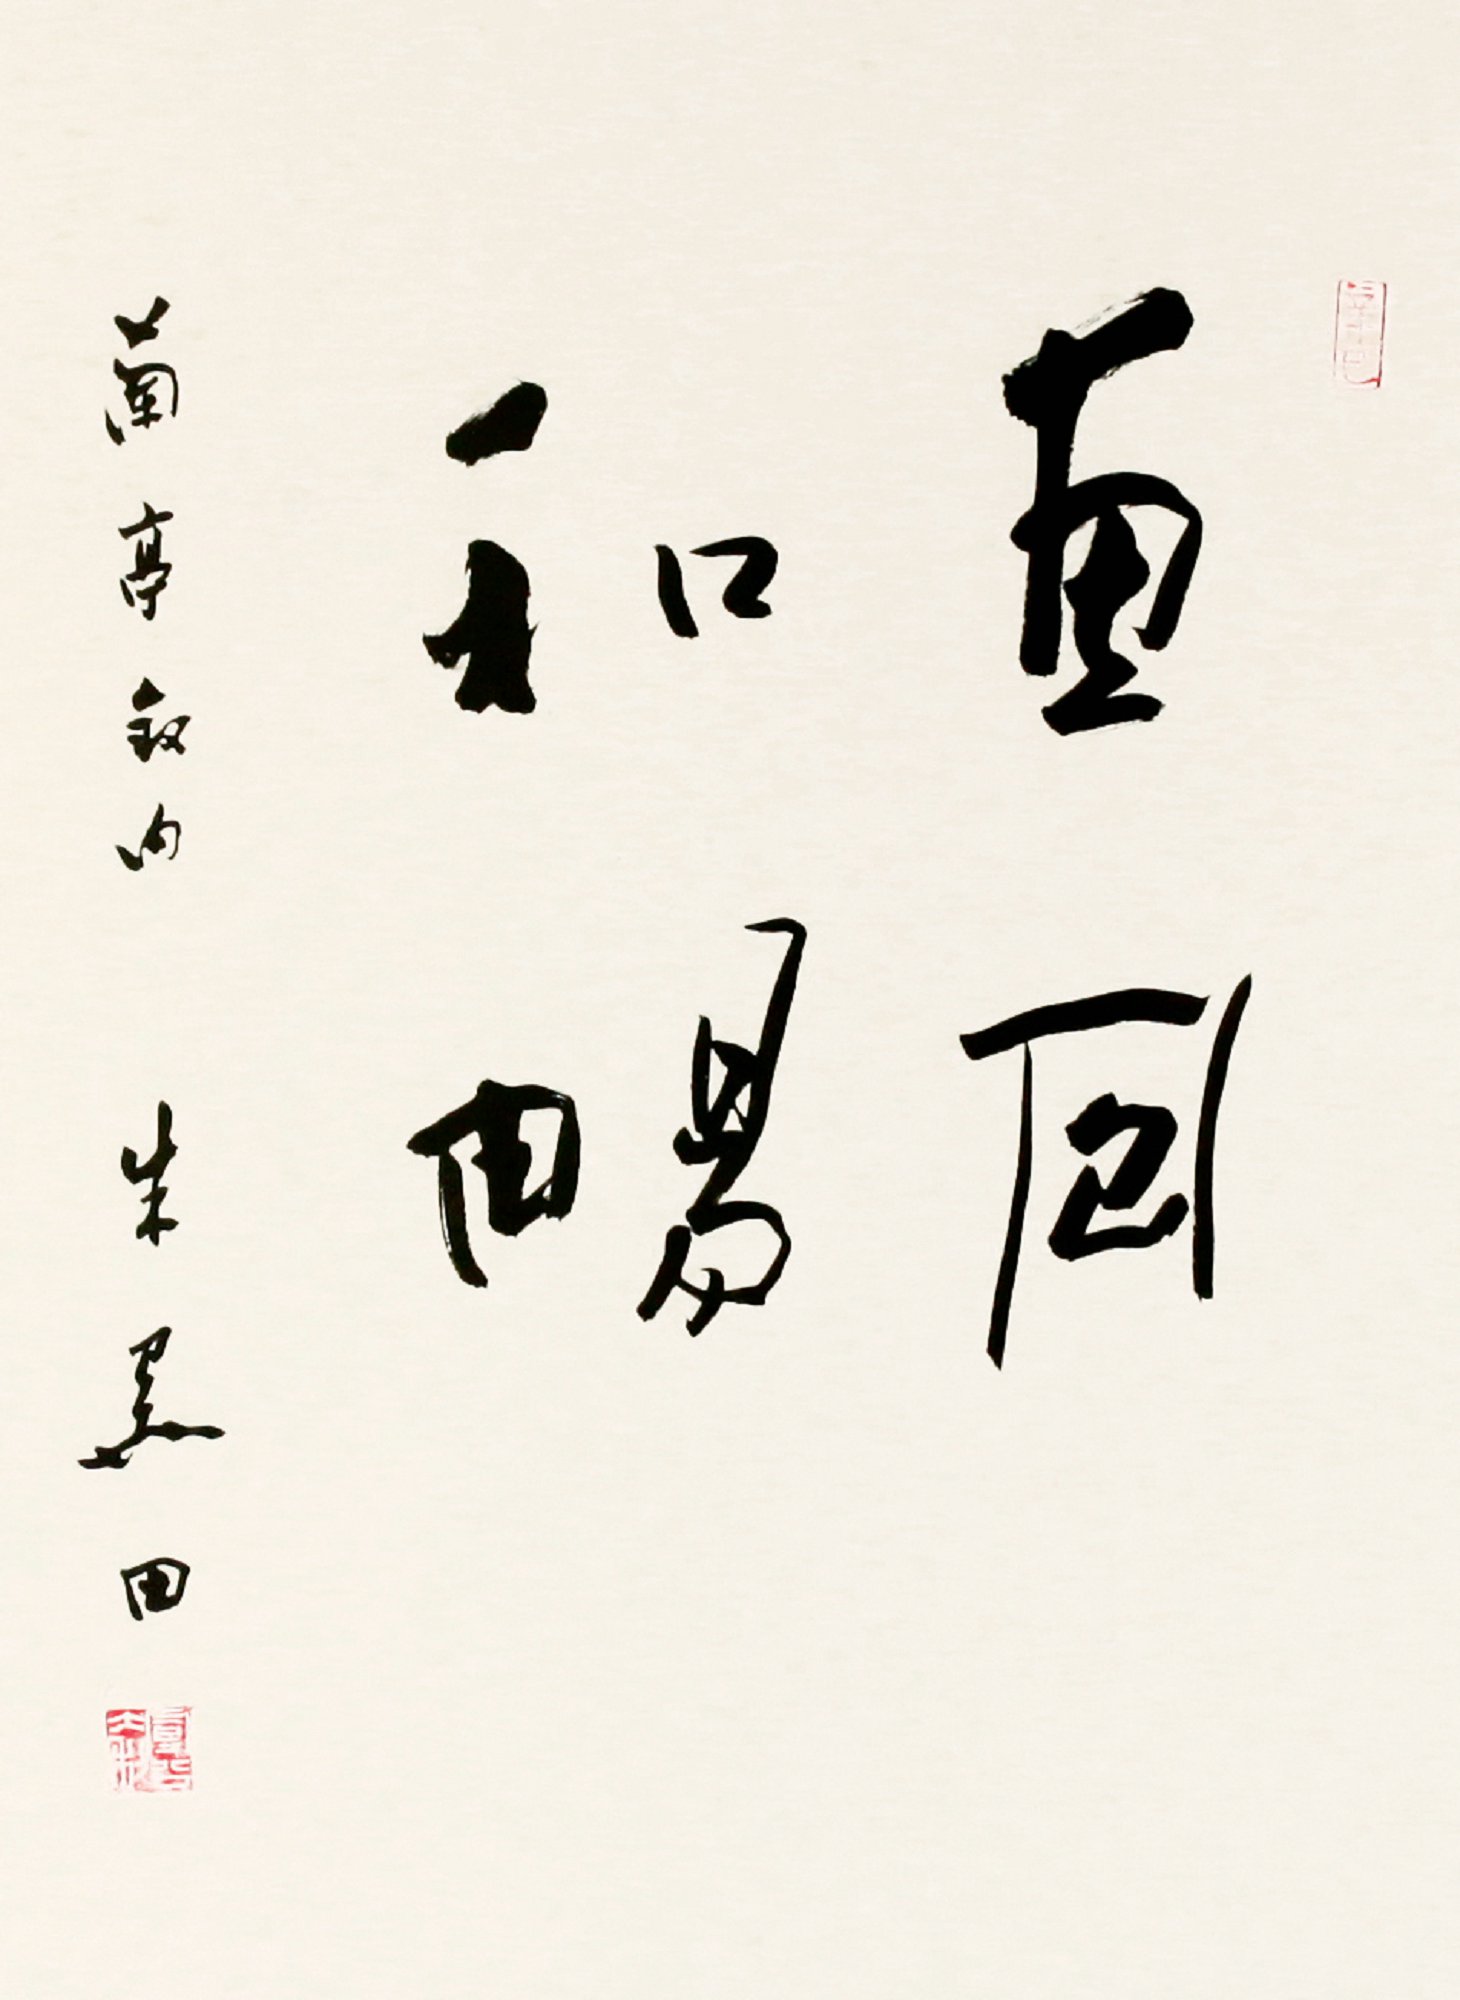 惠風
和暢
蘭亭敘內 朱墨田